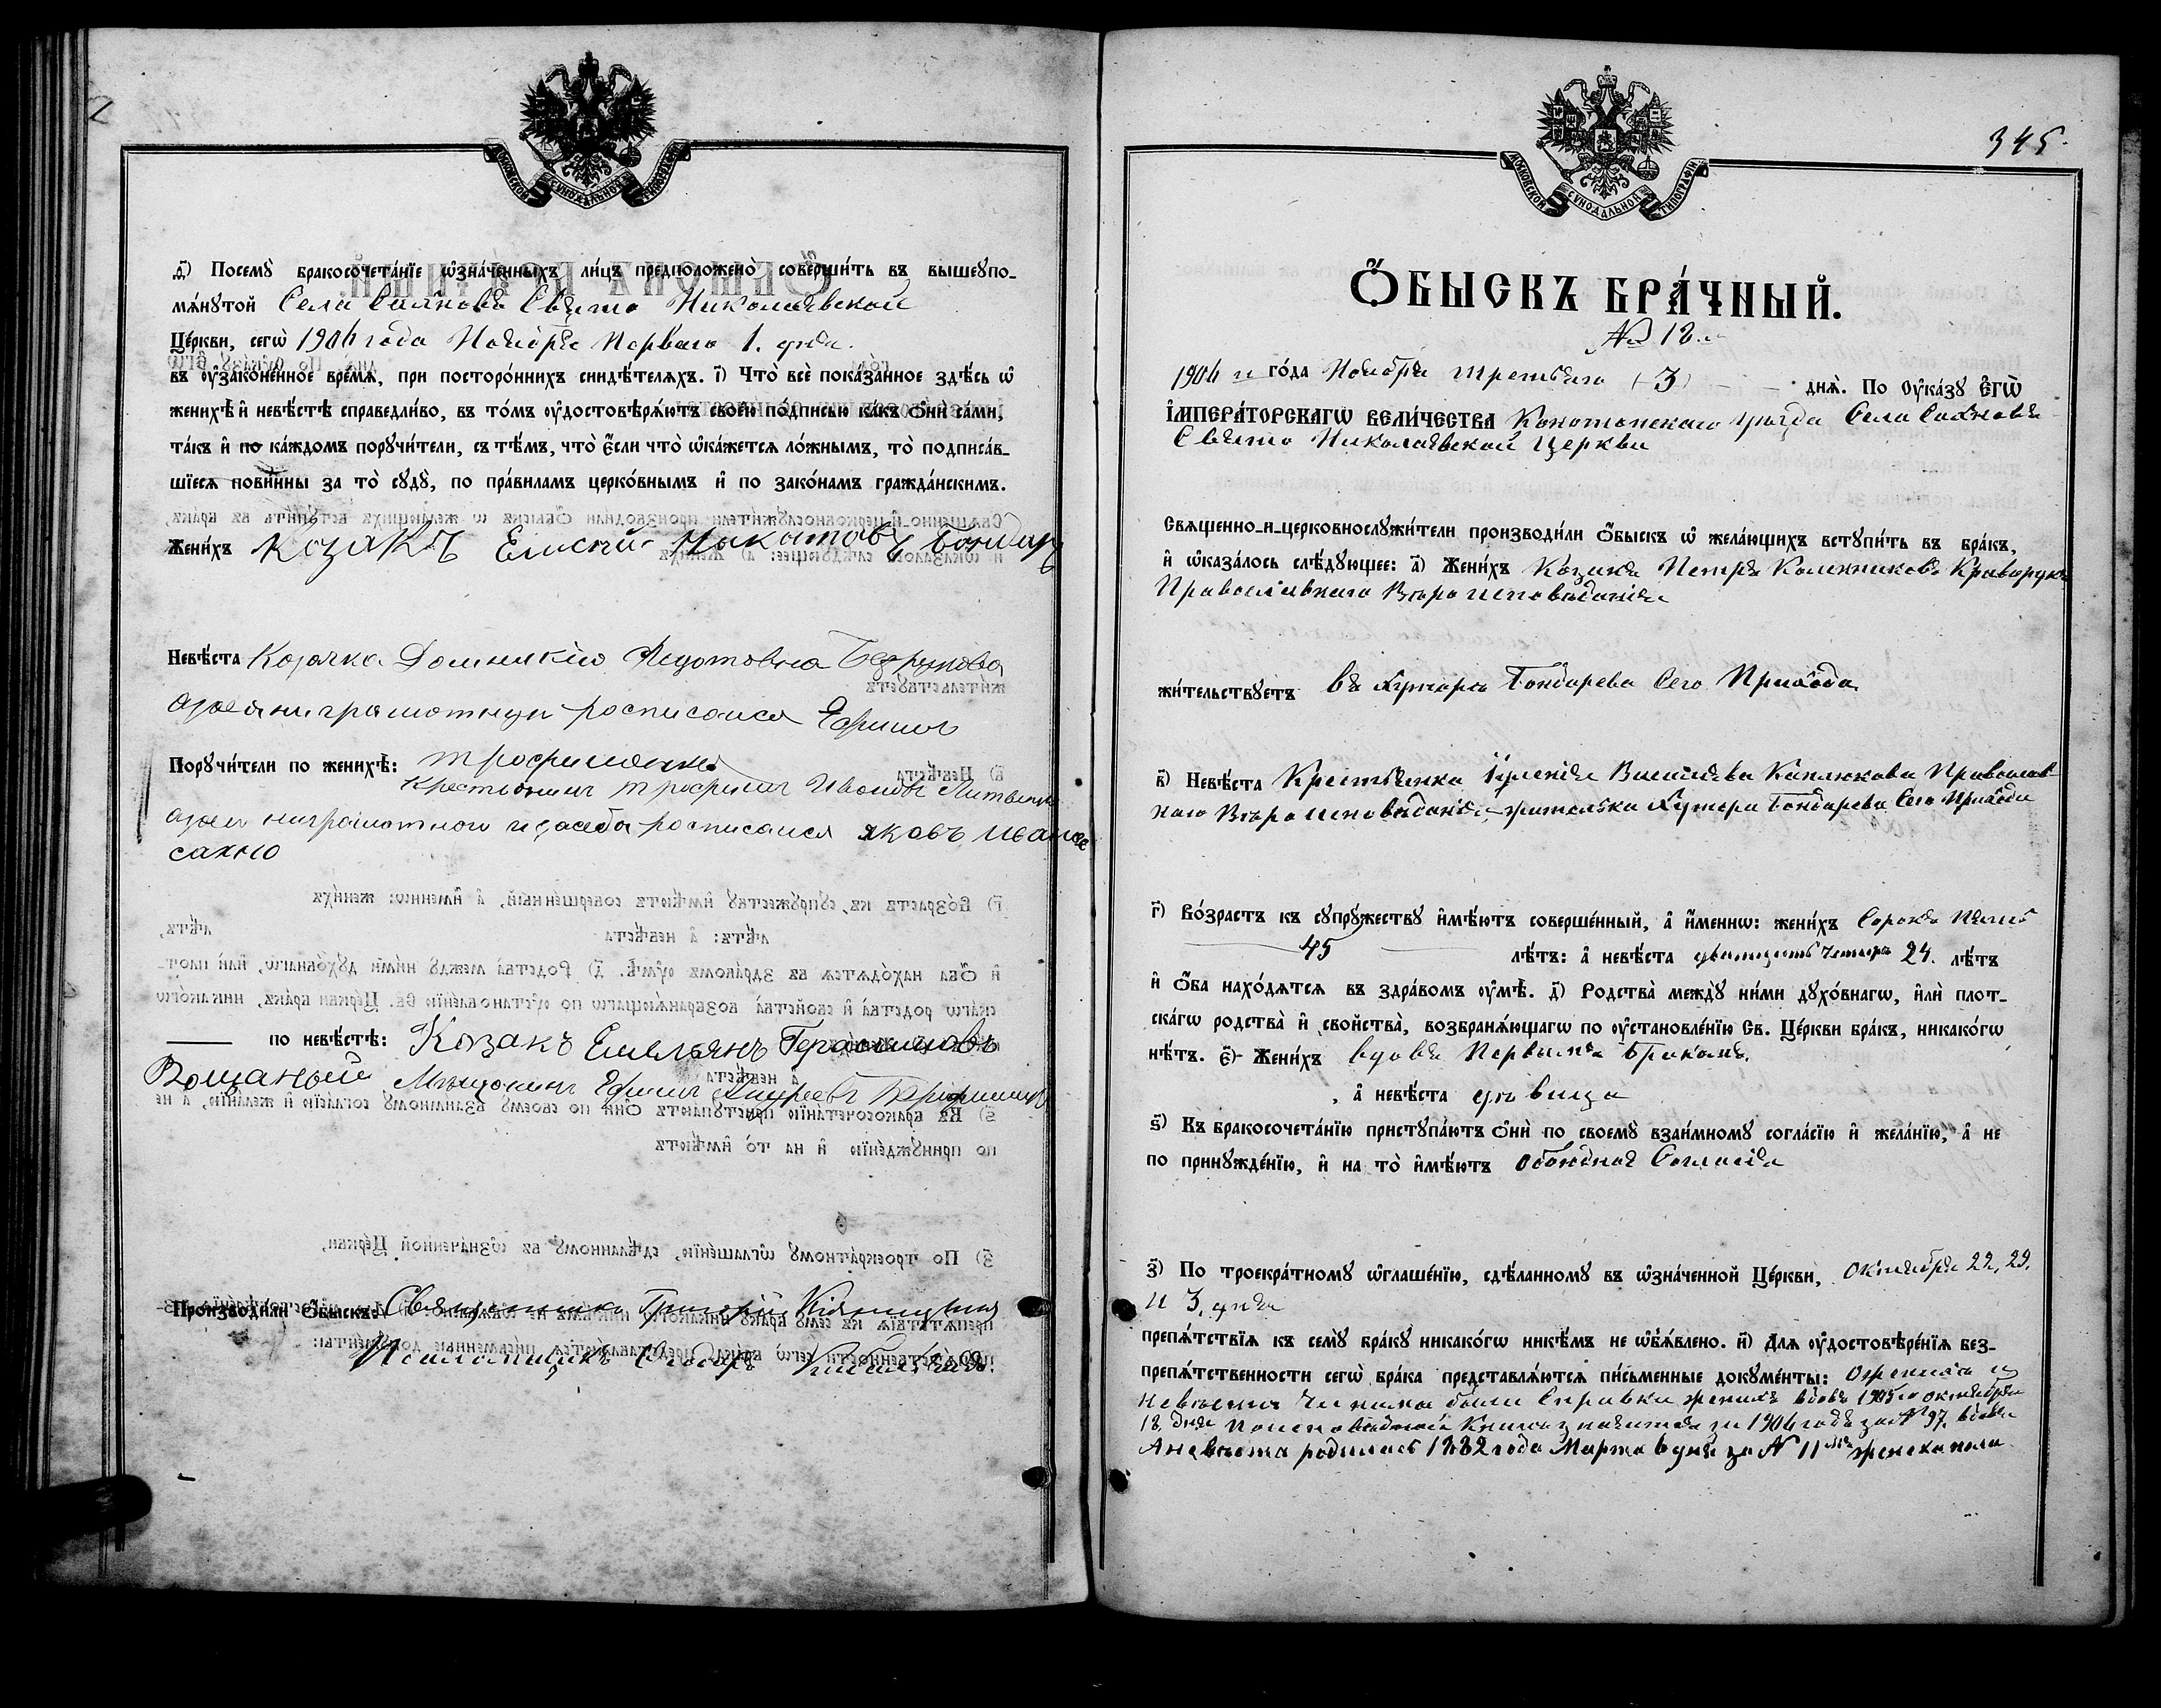 МОСКОВСКОЙ СУНОДАЛЬНОЙ ТИПОГРАФІИ
ѳ҃) Посемꙋ̀ бракосочета́нїе ѡ҆зна́ченныхъ ли́цъ предположено̀ соверши́ть въ вышеꙋпо-
мѧ́нꙋтой Села Свято Николаевской
Це́ркви, сегѡ̀ 1906 года Ноября Перваго 1. дня.
въ ᲂу҆зако́ненное вре́мѧ, при посторо́ннихъ свидѣ́телѧхъ. і҃) Что̀ всѐ пока́занное здѣ́сь ѡ҆
женихѣ̀ и҆ невѣ́стѣ справедли́во, въ то́мъ ᲂу҆достовѣрѧ́ютъ свое́ю по́дписью ка́къ ѻ҆нѝ са́ми,
та́къ и҆ по ка́ждомъ порꙋчи́тели, съ тѣ́мъ, что̀ є҆́сли что̀ ѡ҆ка́жетсѧ ло́жнымъ, то̀ подписа́в-
шїесѧ пови́нны за то̀ сꙋдꙋ̀, по пра́виламъ церко́внымъ и҆ по зако́намъ гражда́нскимъ.
Жени́хъ Козакъ Бондарь
Невѣ́ста Козачка Домникія Федотовна
а зая неграмотную росписался Ефимъ
Порꙋчи́тели по женихѣ̀: Трофименко
Крестьянинъ Трофимъ Ивановъ
а заея неграмотного и засебя росписался яковъ ивановъ
сахно
по невѣ́стѣ: Козакъ Емельянъ Герасимовъ
Мѣщанинъ Ефимъ Андреевъ
Производи́ли Ѻ҆́быскъ: Священникъ Григорій
Псаломщикъ
345.
МОСКОВСКОЙ СУНОДАЛЬНОЙ ТИПОГРАФІИ
Ѻ҆́БЫСКЪ БРА́ЧНЫЙ.
№ 12.
1906 го́да Ноября третьяго (3) днѧ̀. По ᲂу҆ка́зꙋ Є҆ГѠ̀
І҆МПЕРА́ТОРСКАГѠ ВЕЛИ́ЧЕСТВА Конотопскаго уѣзда Села
Свято Николаевской Церкви
Свѧщенно-и-церковнослꙋжи́тели производи́ли Ѻ҆́быскъ ѡ҆ жела́ющихъ встꙋпи́ть въ бра́къ,
и҆ ѡ҆каза́лось слѣ́дꙋющее: а҃) Жени́хъ Козакъ Петръ Криворукъ
Православнаго Вѣроисповѣданія
жи́тельствꙋетъ въ хуторѣ Бондарева Сего Прихода
в҃) Невѣ́ста Крестьянка Васильева Православ-
наго Вѣроисповѣданія – жителька Хутора Бондарева Сего Прихода
г҃) Во́зрастъ къ сꙋпрꙋ́жествꙋ и҆мѣ́ютъ соверше́нный, а҆ и҆́меннѡ: жени́хъ Сорокъ Пять
45 лѣ́тъ: а҆ невѣ́ста двадцать четыре 24. лѣ́тъ
и҆ ѻ҆́ба нахо́дѧтсѧ въ здра́вомъ ᲂу҆мѣ̀. д҃) Родства̀ междꙋ̀ ни́ми дꙋхо́внагѡ, и҆лѝ плот-
ска́гѡ родства̀ и҆ сво́йства̀, возбранѧ́ющагѡ по ᲂу҆становле́нїю Св. Це́ркви бра́къ, никако́гѡ
нѣ́тъ. є҃) Жени́хъ вдовъ Первымъ Бракомъ,
а҆ невѣ́ста дѣвица
ѕ҃) Къ бракосочета́нїю пристꙋпа́ютъ ѻ҆нѝ по своемꙋ̀ взаи́мномꙋ согла́сїю и҆ жела́нїю, а҆ не
по принꙋжде́нїю, и҆ на то̀ и҆мѣ́ютъ обоюдное Согласіе
з҃) По троекра́тномꙋ ѡ҆глаше́нїю, сдѣ́ланномꙋ въ ѡ҆зна́ченной Це́ркви, Октября 22, 29,
и 3, дня
препѧ́тствїѧ къ семꙋ̀ бра́кꙋ никако́гѡ никѣ́мъ не ѡ҆б̾ѧ́влено. и҃) Длѧ ᲂу҆достовѣре́нїѧ без-
препѧ́тственности сегѡ̀ бра́ка представлѧ́ютсѧ пи́сьменные докꙋме́нты: О женихѣ и
невѣстѣ Справки женихъ вдовъ 1905 го октября
18 дня за 1906 годъ за № 97, вдовъ
А невѣста родилась 1882 года Марта 6 дня за № 11 женска пола